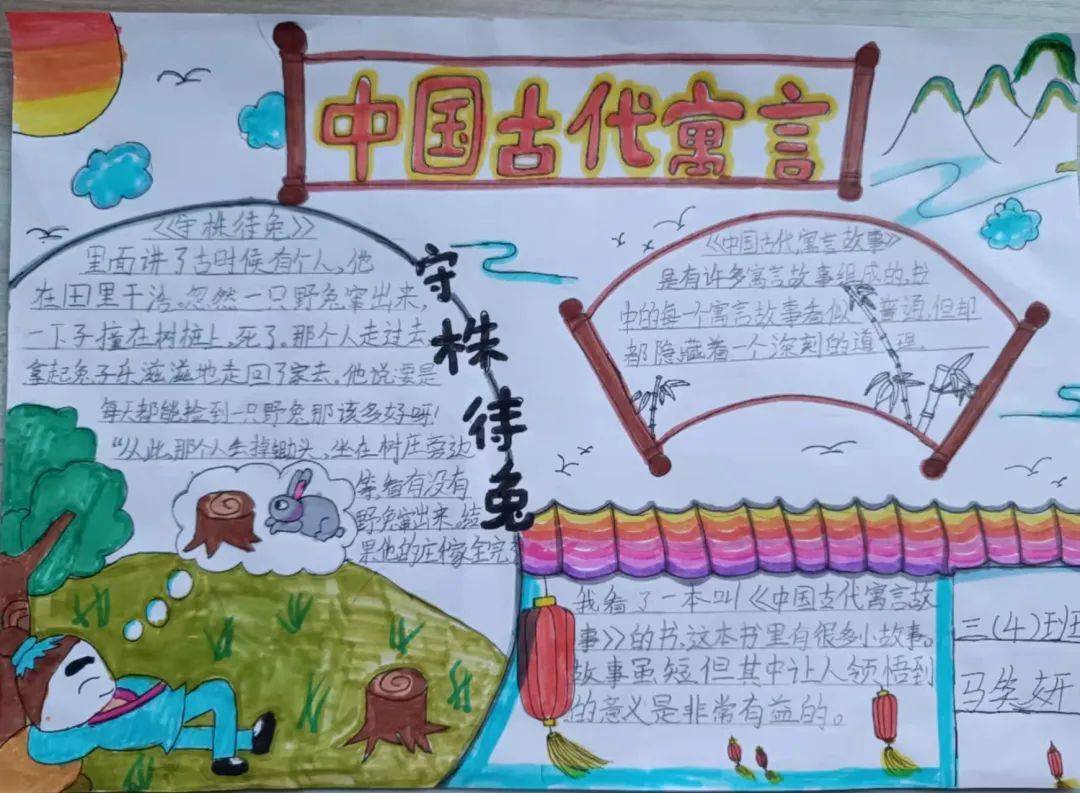 中国古代寓言
《守株待兔》
里面讲了古时候有个人,他
在田里干活。忽然一只野兔窜出来,
一下子撞在树桩上,死了。那个人走过去
拿起兔子乐滋滋地走回了家去。他说要是
每天都能捡到一只野兔那该多好呀!
“从此,那个人丢掉锄头,坐在树庄旁边
等着有没有
野兔窜出来。结
果他的庄稼全完了
守株待兔
《中国古代寓言故事》
是有许多寓言故事组成的。书
中的每一个寓言故事看似 普通,但却
都隐藏着一个深刻的道理。
我看了一本叫《中国古代寓言故
事》的书,这本书里有很多小故事。
故事虽短,但其中让人领悟到
的意义是非常有益的。
三(4)班
马笑妍